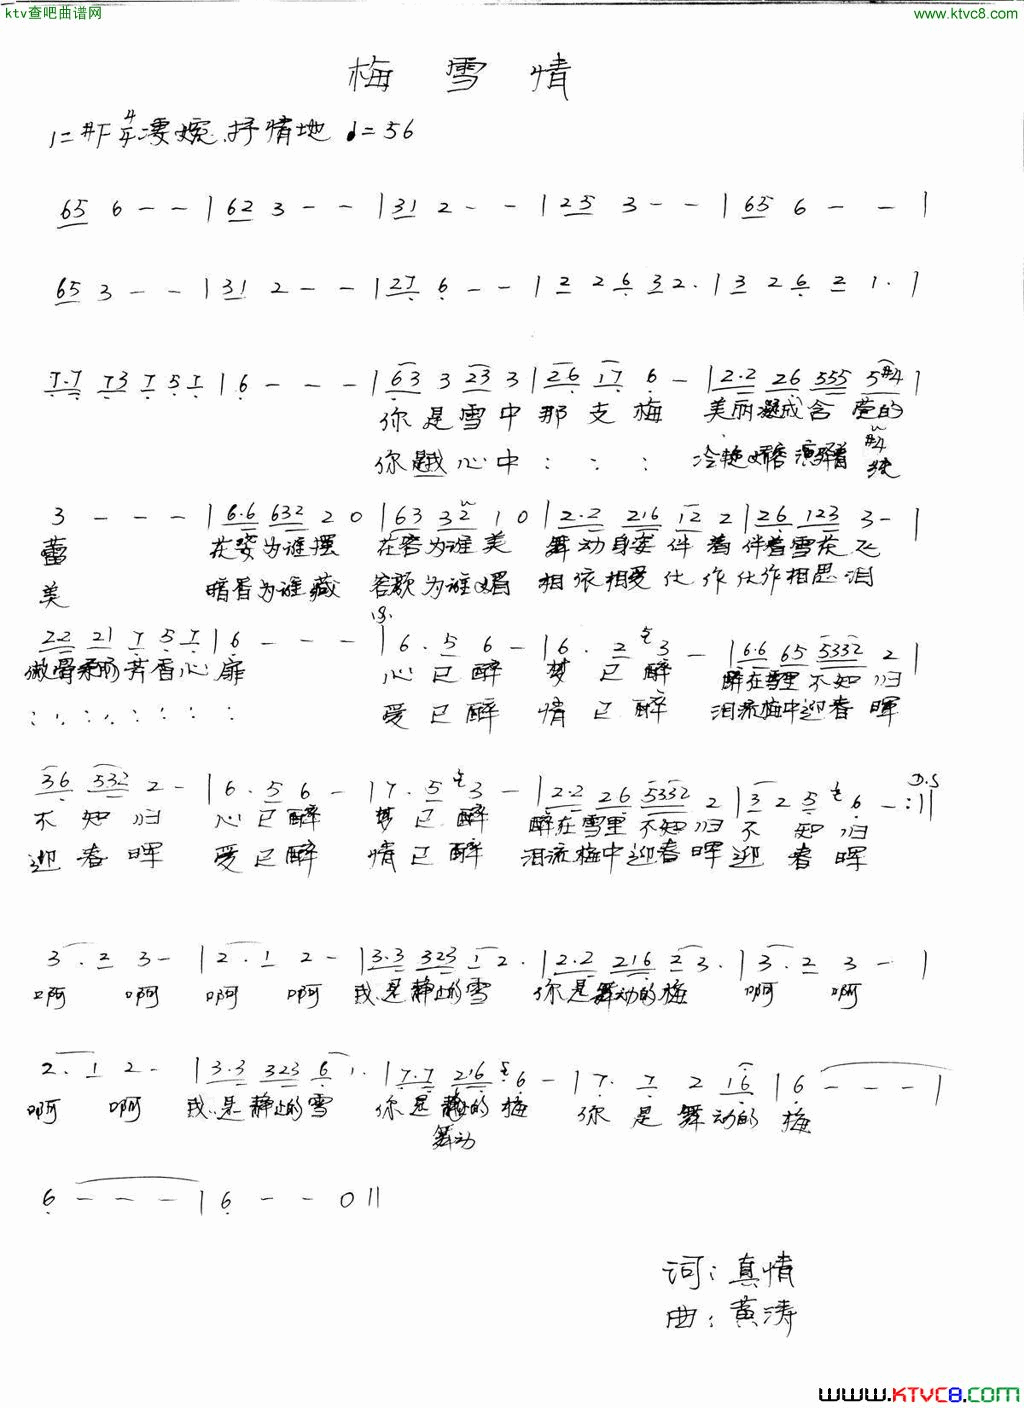 ktv查吧曲谱网
www.ktvc8.com
梅 雪 情
1=#F 4/4 凄婉.抒情地 ♩=56
65 6 - - | 62 3 - - | 31 2 - - | 25 3 - - | 65 6 - - |
65 3 - - | 31 2 - - | 27 6 - - | 2 2 6 32. | 3 2 6 2 1. |
7.7 73 7 5 7 | 6 - - - | 63 3 23 3 | 26 17 6 - | 2.2 26 555 5#4 |
你是雪中那支梅 美丽凝成含苞的
你是我心中 : : : 冷艳 演绎着 纯
3 - - - | 6.6 632 2 0 | 63 32 1 0 | 2.2 216 12 2 | 26 123 3- |
蕾 花姿为谁摆 花容为谁美 舞动身姿伴着伴着雪花飞
美 暗香为谁藏 容歌为谁媚 相依相爱化作化作相思泪
22 21 7 5 7 | 6 - - - | 6 . 5 6 - | 6 . 2 3 - | 6.6 65 5332 2 |
傲骨柔肠芳香心扉 心已醉 梦已醉 醉在雪里不知归
: : : : : : : : 爱已醉 情已醉 泪流梅中迎春晖
36 532 2 - | 6. 5 6 - | 7. 5 3 - | 2.2 26 5332 2 | 3 2 5 6 - :|| D.S
不知归 心已醉 梦已醉 醉在雪里不知归 不知归
迎春晖 爱已醉 情已醉 泪流梅中迎春晖 迎春晖
3 . 2 3- | 2 . 1 2 - | 3.3 323 1 2. | 2.2 216 2 3. | 3. 2 3 - |
啊 啊 啊 啊 我是静止的雪 你是舞动的梅 啊 啊
2. 1 2- | 3.3 323 6 1. | 7.7 216 6 - | 7. 7 2 16 | 6 - - - |
啊 啊 我是静止的雪 你是 的梅 你是舞动的梅
舞动
6 - - - | 6 - - 0 ||
词:真情
曲:黄涛
www.KTVC8.com